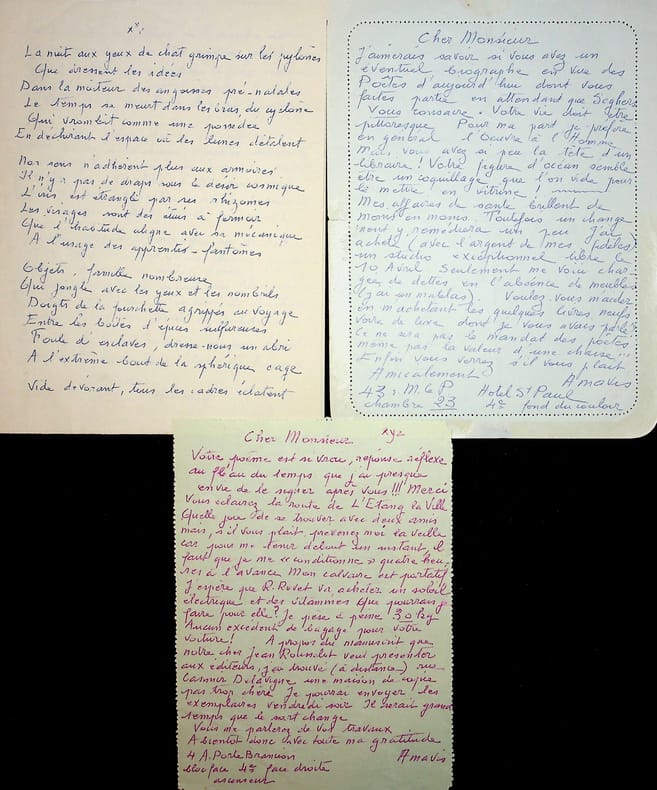 La nuit aux yeux de chat grimpe sur les pylônes
Que dressent les idées
Dans la moiteur des angoisses pré-natales
Le temps se meurt dans les bras du cyclone
Qui vrombit comme une possédée
En déchirant l'espace où les lunes détalent
Nos sens n'adhèrent plus aux armoires
Il n'y a pas de draps sous le désir cosmique
L'iris est étranglé par ses rhizomes
Les visages sont des étuis à fermoir
Que l'habitude aligne avec sa mécanique
A l'usage des apprentis-fantômes
Objets, famille nombreuse
Qui jongle avec les yeux et les nombrils
Doigts de la fourchette agrippés au voyage
Entre les boîtes d'épices sulfureuses
Foule d'esclaves, dresse-nous un abri
A l'extrême bout de la sphérique cage
Vide dévorant, tous les cadres éclatent
Cher Monsieur
J'aimerais savoir si vous avez un
éventuel biographe en vue des
Poètes d'aujourd'hui dont vous
faites partie en attendant que Seghers
vous consacre. Votre vie doit être
pittoresque Pour ma part je préfère
en général l'œuvre à l'homme
mais vous avez si peu la tête d'un
libraire! Votre figure d'océan semble
être un coquillage que l'on vide pour
le mettre en vitrine!
Mes affaires de santé brillent de
moins en moins. Toutefois un change
ment y remédiera un peu J'ai
acheté (avec l'argent de mes fidèles)
un studio exceptionnel libre le
10 Avril Seulement me voici char
gée de dettes en l'absence de meubles
(j'ai un matelas) Voulez vous m'aider
en m'achetant les quelques livres neufs
voire de luxe dont je vous avais parlé?
Ce ne sera pas le mandat des poètes
même pas la valeur d'une chaise...
Enfin vous verrez s'il vous plaît
Amicalement Amavis
43 r M. le P Hotel St Paul
chambre 23 4e fond du couloir
Cher Monsieur xyz
Votre poème est si vrai, réponse réflexe
au fléau du temps que j'ai presque
envie de le signer après vous!!! Merci
Vous éclairez la route de L'Etang la Ville
Quelle joie de se trouver avec deux amis
mais, s'il vous plaît prévenez moi la veille
car pour me tenir debout un instant, il
faut que je me "conditionne" quatre heu
res à l'avance Mon calvaire est portatif
J'espère que R. va acheter un soleil
électrique et des vitamines Que pourrais je
faire pour elle? Je pèse à peine 30 kg
Aucun excédent de bagage pour votre
voiture! A propos du manuscrit que
notre cher Jean Rousselot veut présenter
aux éditeurs, j'ai trouvé (à distance) rue
Casimir Delavigne une maison de copie
pas trop chère Je pourrai envoyer les
exemplaires vendredi soir Il serait grand
temps que le sort change
Vous me parlerez de vos travaux
A bientôt donc avec toute ma gratitude
4 A. Porte Brancion Amavis
bloc face 4e face droite
ascenseur